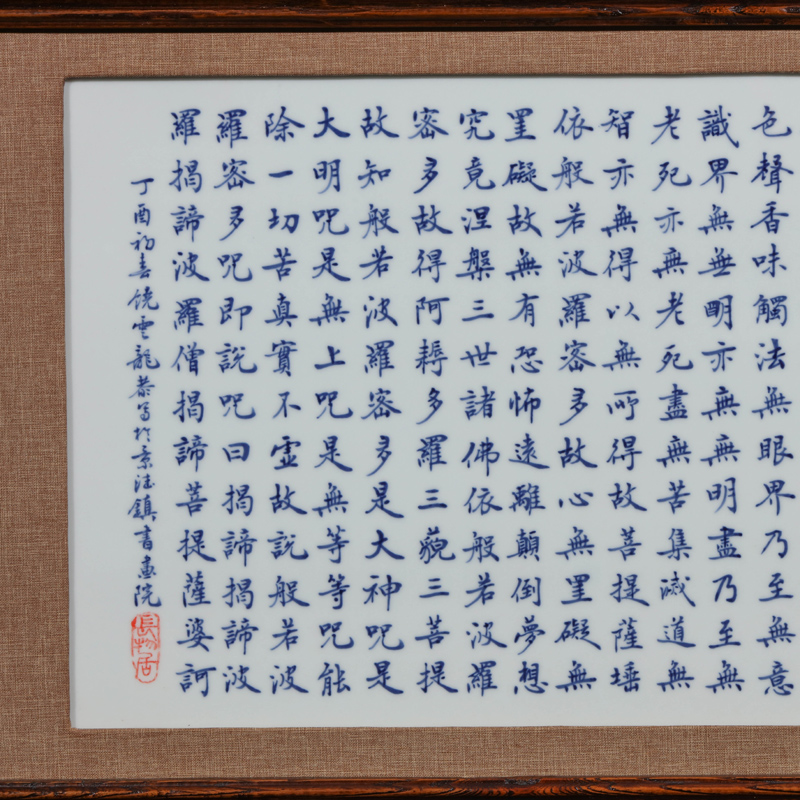 色聲香味觸法無眼界乃至無意
識界無無明亦無無明盡乃至無
老死亦無老死盡無苦集滅道無
智亦無得以無所得故菩提薩埵
依般若波羅密多故心無罣礙無
罣礙故無有恐怖遠離顛倒夢想
究竟涅槃三世諸佛依般若波羅
密多故得阿耨多羅三藐三菩提
故知般若波羅密多是大神咒是
大明咒是無上咒是無等等咒能
除一切苦真實不虛故說般若波
羅密多咒即說咒曰揭諦揭諦波
羅揭諦波羅僧揭諦菩提薩婆訶
丁酉初春饒雲龍恭寫於景德鎮書畫院
長物居